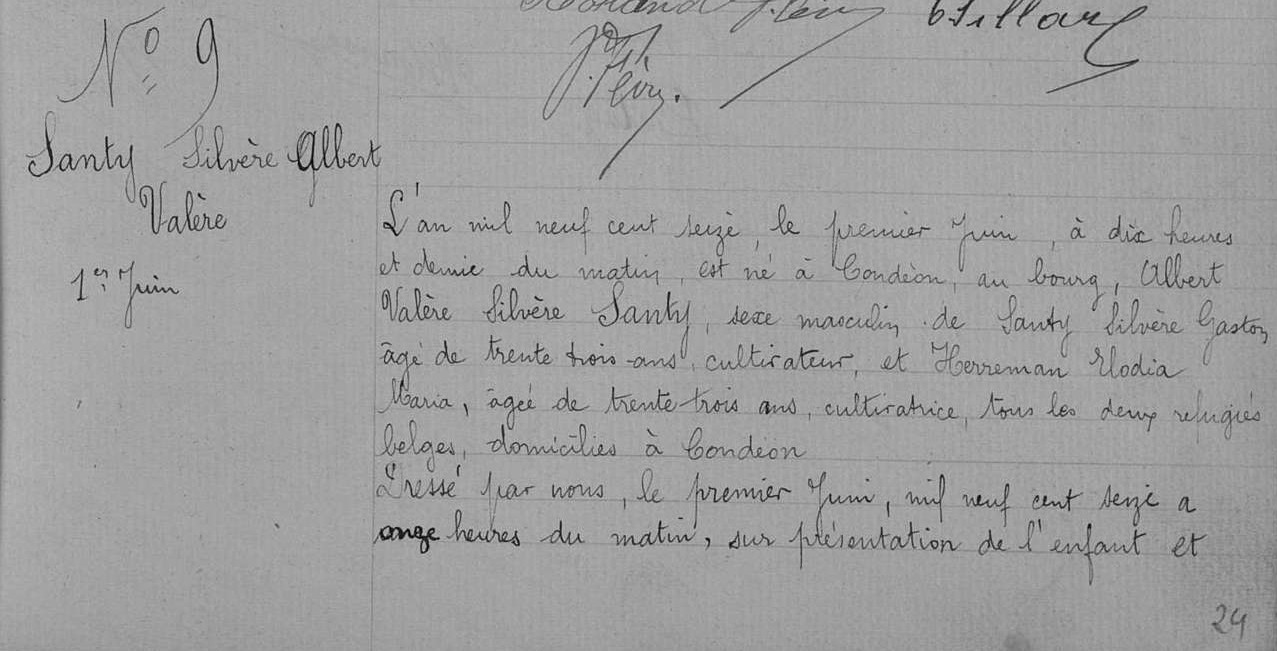 Villard
N° 9
Santy Silvère Albert
Valère
1er Juin
L'an mil neuf cent seize, le premier Juin, à dix heures
et demie du matin, est né à Condéon, au bourg, Albert
Valère Silvère Santy, sexe masculin, de Santy Silvère Gaston,
âgé de trente trois ans, cultivateur, et Herreman Elodia
Maria, âgée de trente-trois ans, cultivatrice, tous les deux refugiés
belges, domiciliés à Condéon
Dressé par nous, le premier Juin, mil neuf cent seize a
onze heures du matin, sur présentation de l'enfant et
24